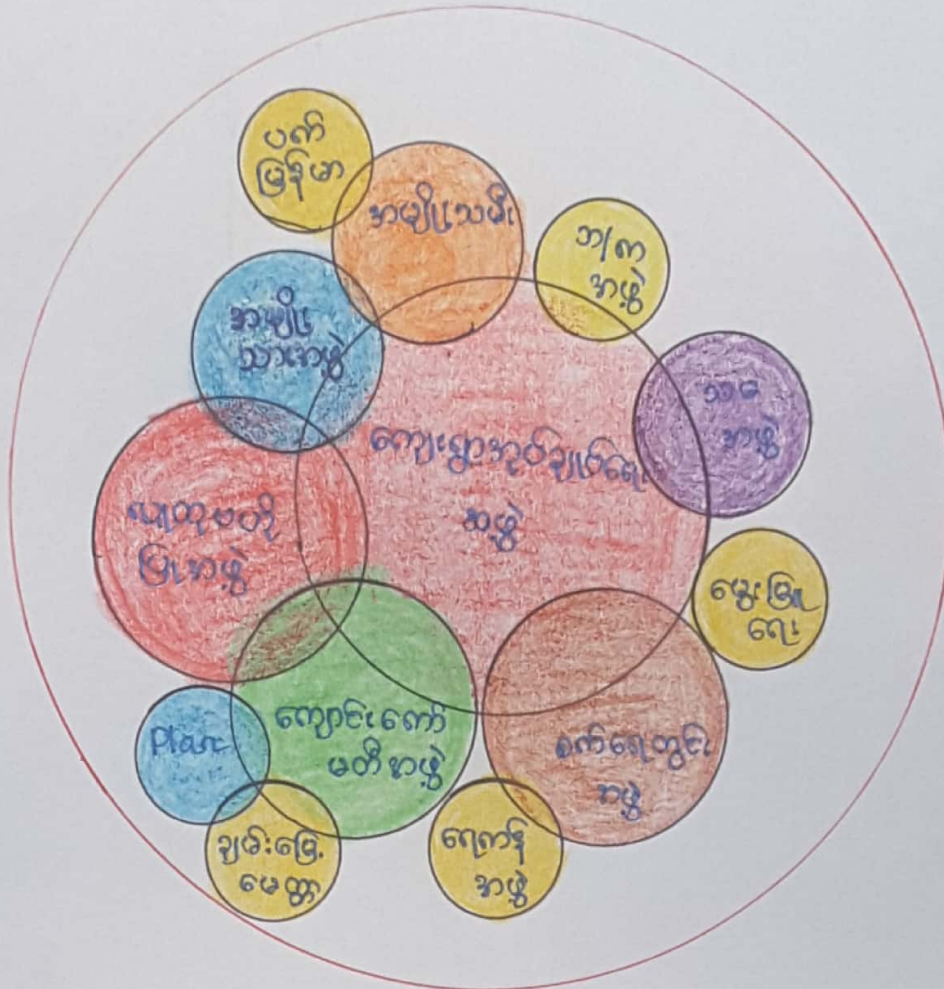 ပက်
မြန်မာ
အမျိုးသမီး
ဘ/က
အဖွဲ့
အမျိုး
သားအဖွဲ့
အဖွဲ့
ကျေးရွာအုပ်ချုပ်ရေး
အဖွဲ့
ပြုအဖွဲ့
မွေးမြူ
ရေး
ကျောင်းကော်
မတီအဖွဲ့
စက်ရေတွင်း
အဖွဲ့
Plan
ချမ်းမြေ့
မေတ္တာ
ရေကန်
အဖွဲ့